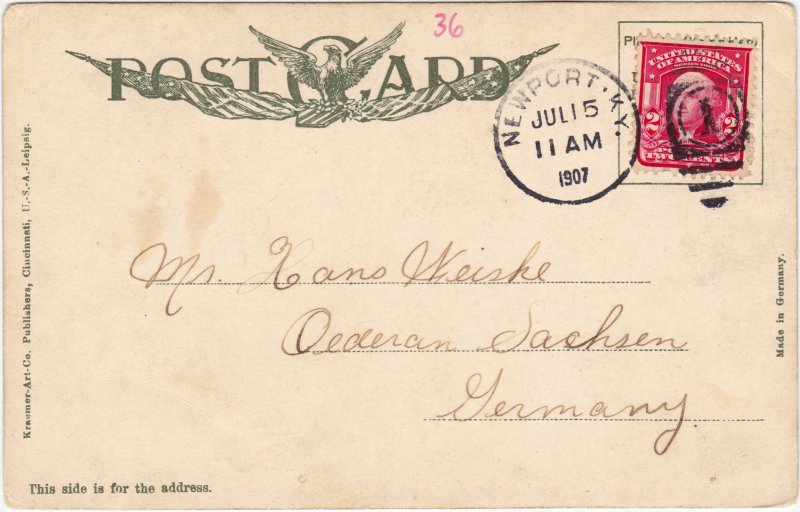 36
POST CARD
UNITED STATES
OF AMERICA
2 2
TWO CENTS
1
NEWPORT, KY.
JUL 15
11 AM
1907
Mr. Hans Weiske
Oederan Sachsen
Germany
Kraemer-Art-Co. Publishers, Cincinnati, U.-S.-A.-Leipsig.
Made in Germany.
This side is for the address.